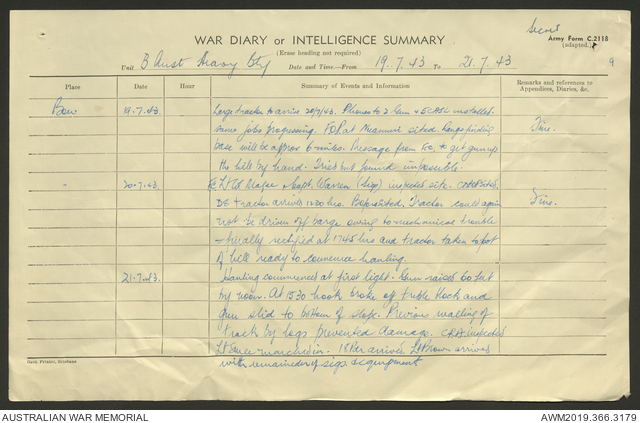 Secret
WAR DIARY or INTELLIGENCE SUMMARY
Army Form C.2118
(Erase heading not required)
(adapted.)
Unit B Aust Heavy Bty Date and Time—From 19.7.43 To 21.7.43
9
Place Date Hour Summary of Events and Information Remarks and references to Appendices, Diaries, &c.
19.7.43 Large tractor to arrive 20/7/43. Phones to 2 Gun & installed.
same jobs progressing. F.O.P. at sited. Range finding Fine.
base will be approx 6 miles. Message from to get gun up
the hill by hand. Tried but found impossible
" 20.7.43 Lt Col & Capt. Warren (Sigs) inspected site.
tractor arrives 1200 hrs. Tractor could again Fine.
not be driven off barge owing to mechanical trouble
— finally rectified at 1745 hrs and tractor taken to foot
of hill ready to commence hauling.
21.7.43 Hauling commenced at first light. Gun raised 60 feet
by noon. At 1530 hook broke off treble block and
gun slid to bottom of slope. Previous walling of
track by logs prevented damage. CRA inspected
Lt marched in. arrives Lt Brown arrives
with remainder of sigs equipment
Govt. Printer, Brisbane
AUSTRALIAN WAR MEMORIAL
AWM2019.366.3179